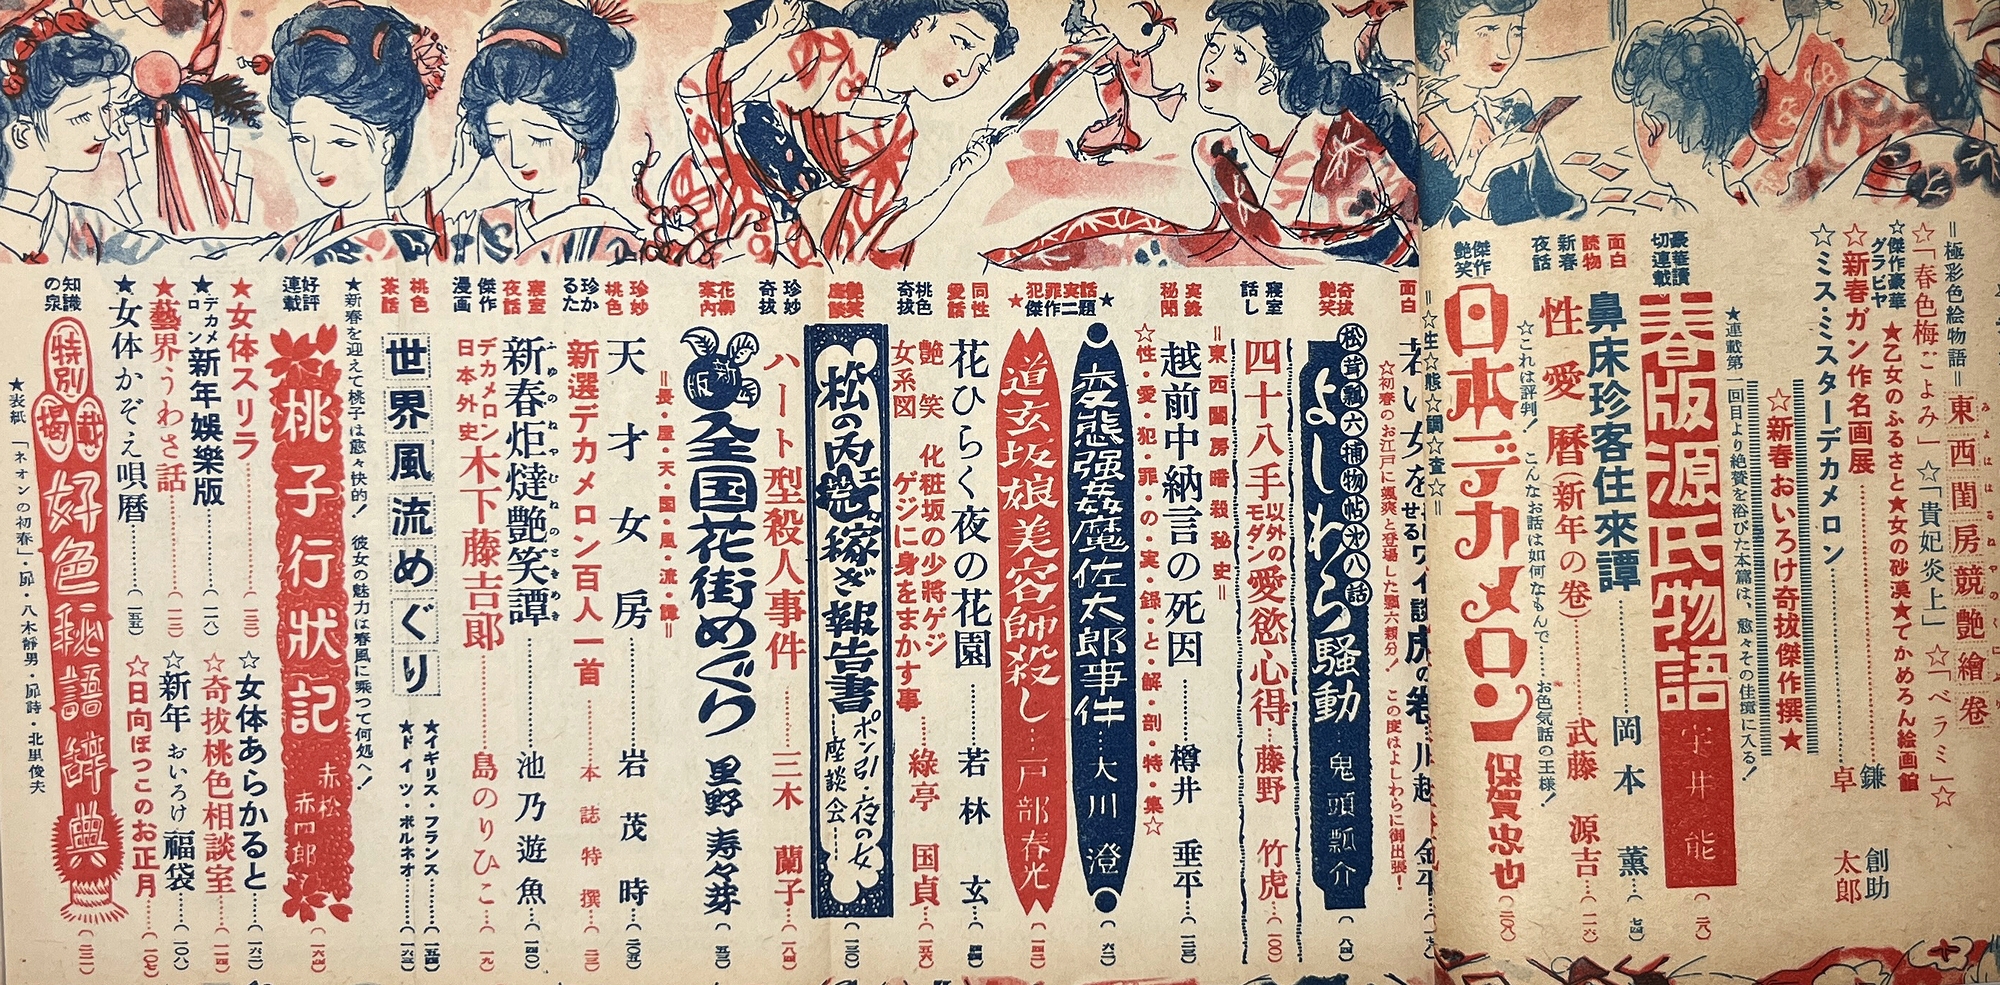 ＝極彩色絵物語＝東西閨房競艶繪巻
☆「春色梅ごよみ」☆「貴妃炎上」☆「ベラミ」☆
☆傑作豪華グラビヤ ★乙女のふるさと★女の砂漠★てかめろん絵画館
☆新春ガン作名画展
☆ミス・ミスターデカメロン…… 鎌 創助 卓 太郎
☆新春おいろけ奇抜傑作撰★
★連載第一回目より絶賛を浴びた本篇は、愈々その佳境に入る！
豪華讀切連載
春版源氏物語 宇井 能…(二八)
面白読物
鼻床珍客住來譚…… 岡本 薫…(七四)
新春夜話
性愛暦(新年の卷)…… 武藤 源吉…(一一六)
☆これは評判！ こんなお話は如何なもんで……お色気話の王様！
傑作艶笑
日本デカメロン 保賀忠也(二〇八)
＝☆生☆態☆調☆査☆＝
面白
☆初春のお江戸に颯爽と登場した瓢六親分！ この度はよしわらに御出張！
奇抜艶笑
松茸瓢六捕物帖㐧八話
よしわら騒動…… 鬼頭瓢介(八四)
寝室話し
四十八手以外のモダン愛慾心得… 藤野 竹虎…(一〇〇)
＝東西閨房暗殺秘史＝
実録秘聞
越前中納言の死因…… 樽井 垂平…(一三三)
☆性・愛・犯・罪・の・実・録・と・解・剖・特・集☆
★犯罪実話傑作二題★
変態强姦魔佐太郎事件…… 大川 澄(六二)
道玄坂娘美容師殺し…… 戸部春光(一四二)
同性愛話
花ひらく夜の花園…… 若林 玄…
桃色奇抜
艶笑女系図 化粧坂の少將ゲジゲジに身をまかす事…… 綠亭 国貞…(一五六)
艶笑座談
松の内荒稼ぎ報告書 ポン引・夜の女 ―座談会―(一三〇)
珍妙奇抜
ハート型殺人事件…… 三木 蘭子…(一八四)
花柳案内
新年版
全国花街めぐり 里野寿々芽(五三)
＝長・屋・天・国・風・流・譚＝
珍妙桃色
天才女房…… 岩茂 時…(二〇五)
珍かるた
新選デカメロン百人一首…… 本誌特撰…(二三)
寝室夜話
新春炬燵艶笑譚 ふゆのねやむねのときめき…… 池乃遊魚…(一四〇)
傑作漫画
デカメロン日本外史 木下藤吉郎…… 島のりひこ…(一九)
桃色茶話
世界風流めぐり
★イギリス・フランス……(一五四)
★ドイツ・ボルネオ……(一六三)
★新春を迎えて桃子は愈々快的！ 彼女の魅力は春風に乘つて何処へ！
好評連載
桃子行狀記 赤松 赤四郎(一六四)
★女体スリラ……(三三)
☆女体あらかると……(一六二)
★デカメロン新年娯樂版……(一八)
☆奇抜桃色相談室……(一一四)
★藝界うわさ話……(一二三)
☆新年おいろけ福袋……(一〇八)
★女体かぞえ唄暦……(一五五)
☆日向ぼつこのお正月……(一〇七)
知識の泉
特別揭載
好色秘語辞典(三一)
★表紙 「ネオンの初春」・扉・八木靜男・扉詩・北里俊夫